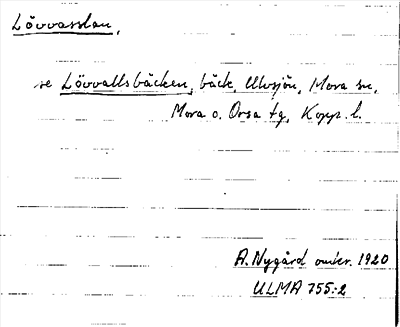 Lövvasslan,
se Lövvallsbäcken, bäck, Ulvsjön, Mora sn,
Mora o. Orsa tg, Kopp. l.
A. Nygård omkr. 1920
ULMA 755:2